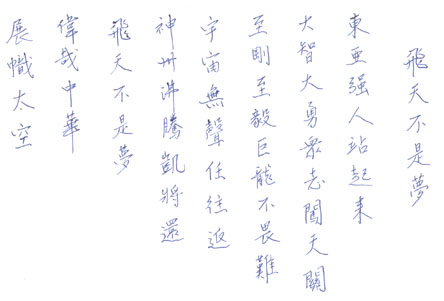 飛天不是夢
東亜强人站起来
大智大勇衆志闖天關
至剛至毅巨龍不畏難
宇宙無聲任往返
神州沸騰凱將還
飛天不是夢
偉哉中華
展幟太空